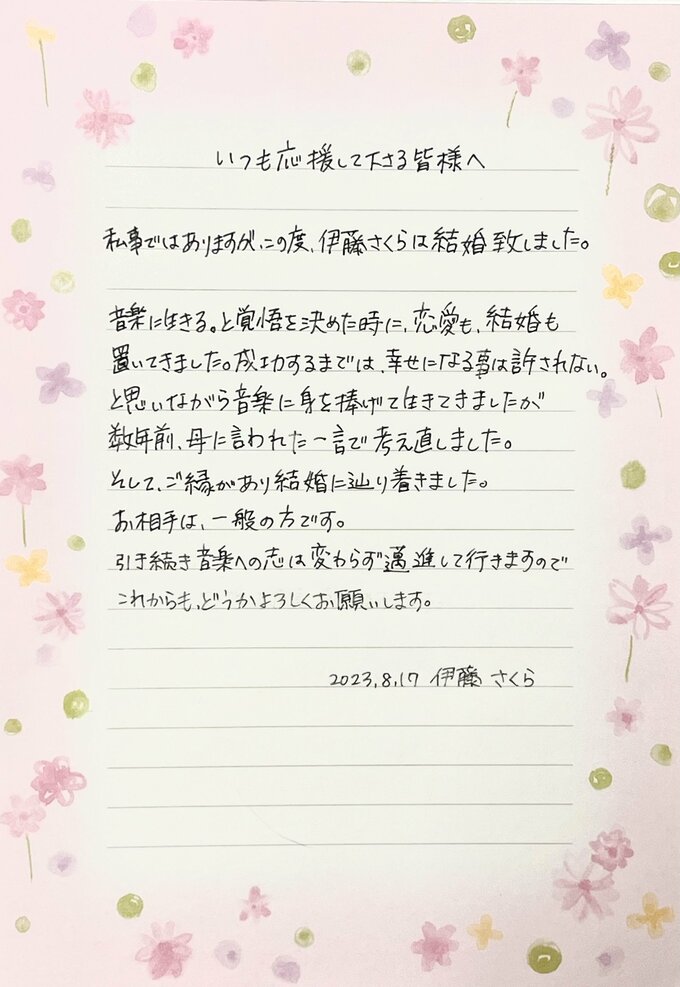 いつも応援して下さる皆様へ
私事ではありますが、この度、伊藤さくらは結婚致しました。
音楽に生きる。と覚悟を決めた時に、恋愛も、結婚も
置いてきました。成功するまでは、幸せになる事は許されない。
と思いながら音楽に身を捧げて生きてきましたが
数年前、母に言われた一言で考え直しました。
そして、ご縁があり結婚に辿り着きました。
お相手は、一般の方です。
引き続き音楽への志は変わらず邁進して行きますので
これからも、どうかよろしくお願いします。
2023.8.17 伊藤 さくら